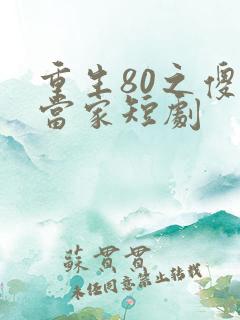 重生80之傻
當家短劇
蘇貫貫
未经同意禁止转载